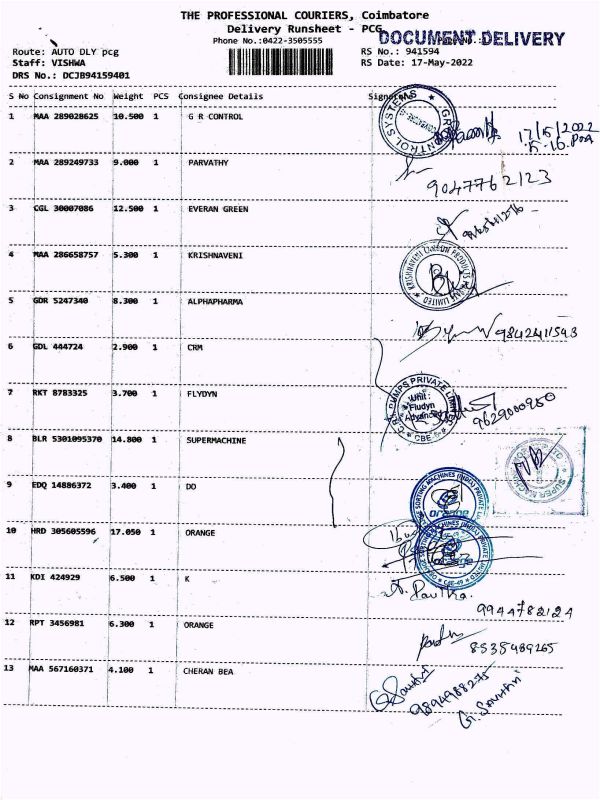 THE PROFESSIONAL COURIERS, Coimbatore
Delivery Runsheet - PCG
DOCUMENT DELIVERY
Phone No.:0422-3505555
Route: AUTO DLY pcg
RS No.: 941594
Staff: VISHWA
RS Date: 17-May-2022
DRS No.: DCJB94159401
S No Consignment No Weight PCS Consignee Details Signature
1 MAA 289028625 10.500 1 G R CONTROL
17/15/2022
2 MAA 289249733 9.000 1 PARVATHY
9047762123
3 CGL 30007086 12.500 1 EVERAN GREEN
4 MAA 286658757 5.300 1 KRISHNAVENI
5 GDR 5247340 8.300 1 ALPHAPHARMA
9842411593
6 GDL 444724 2.900 1 CRM
7 RKT 8783325 3.700 1 FLYDYN
Unit :
Fludyn
Advanced
9629000950
8 BLR 5301095370 14.800 1 SUPERMACHINE
9 EDQ 14886372 3.400 1 DO
orange
10 HRD 305605596 17.050 1 ORANGE
11 KDI 424929 6.500 1 K
9944782124
12 RPT 3456981 6.300 1 ORANGE
8535489265
13 MAA 567160371 4.100 1 CHERAN BEA
9894988275